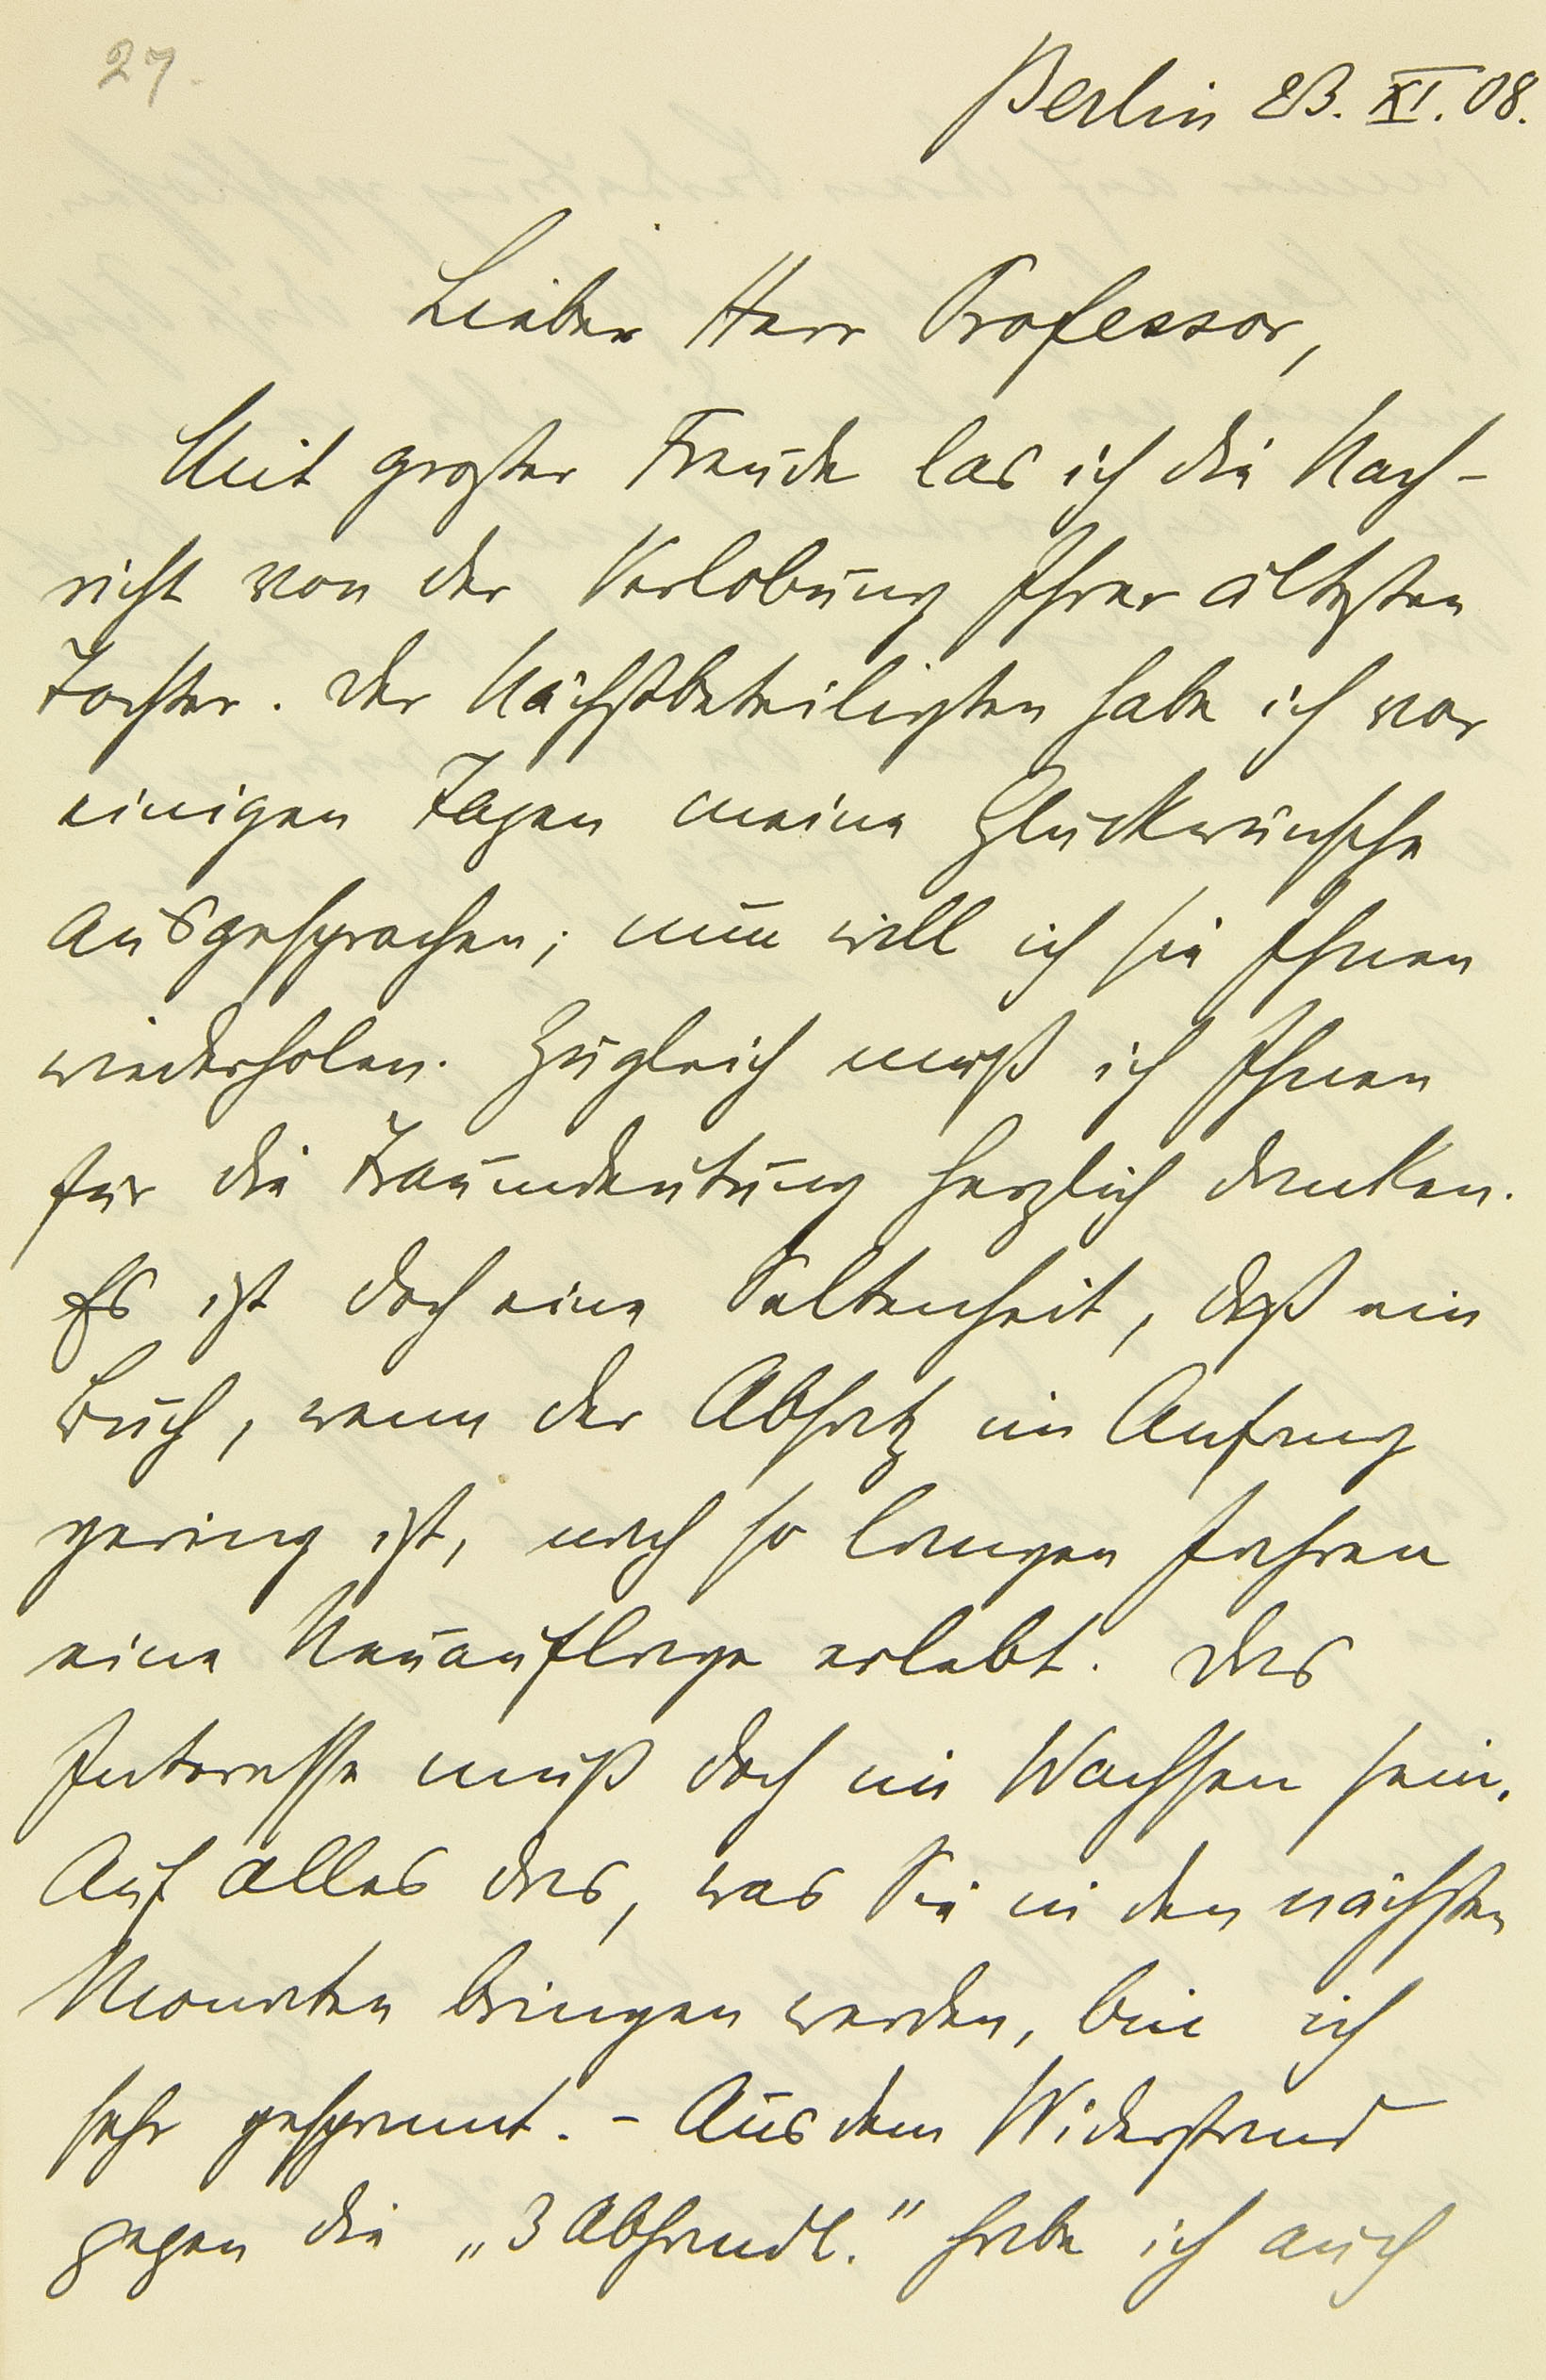 27.
Berlin 23. XI. 08.
Lieber Herr Professor,
Mit großer Freude las ich die Nach-
richt von der Verlobung Ihrer ältesten
Tochter. Der Nächstbeteiligten habe ich vor
einigen Tagen meine Glückwünsche
ausgesprochen; nun will ich sie Ihnen
wiederholen. Zugleich muß ich Ihnen
für die Traumdeutung herzlich danken.
Es ist doch eine Seltenheit, daß ein
Buch, wenn der Absatz im Anfang
gering ist, nach so langen Jahren
eine Neuauflage erlebt. Das
Interesse muß doch im Wachsen sein.
Auf alles das, was Sie in den nächsten
Monaten bringen werden, bin ich
sehr gespannt. - Aus dem Widerstand
gegen die „3 Abhandl.“ habe ich auch